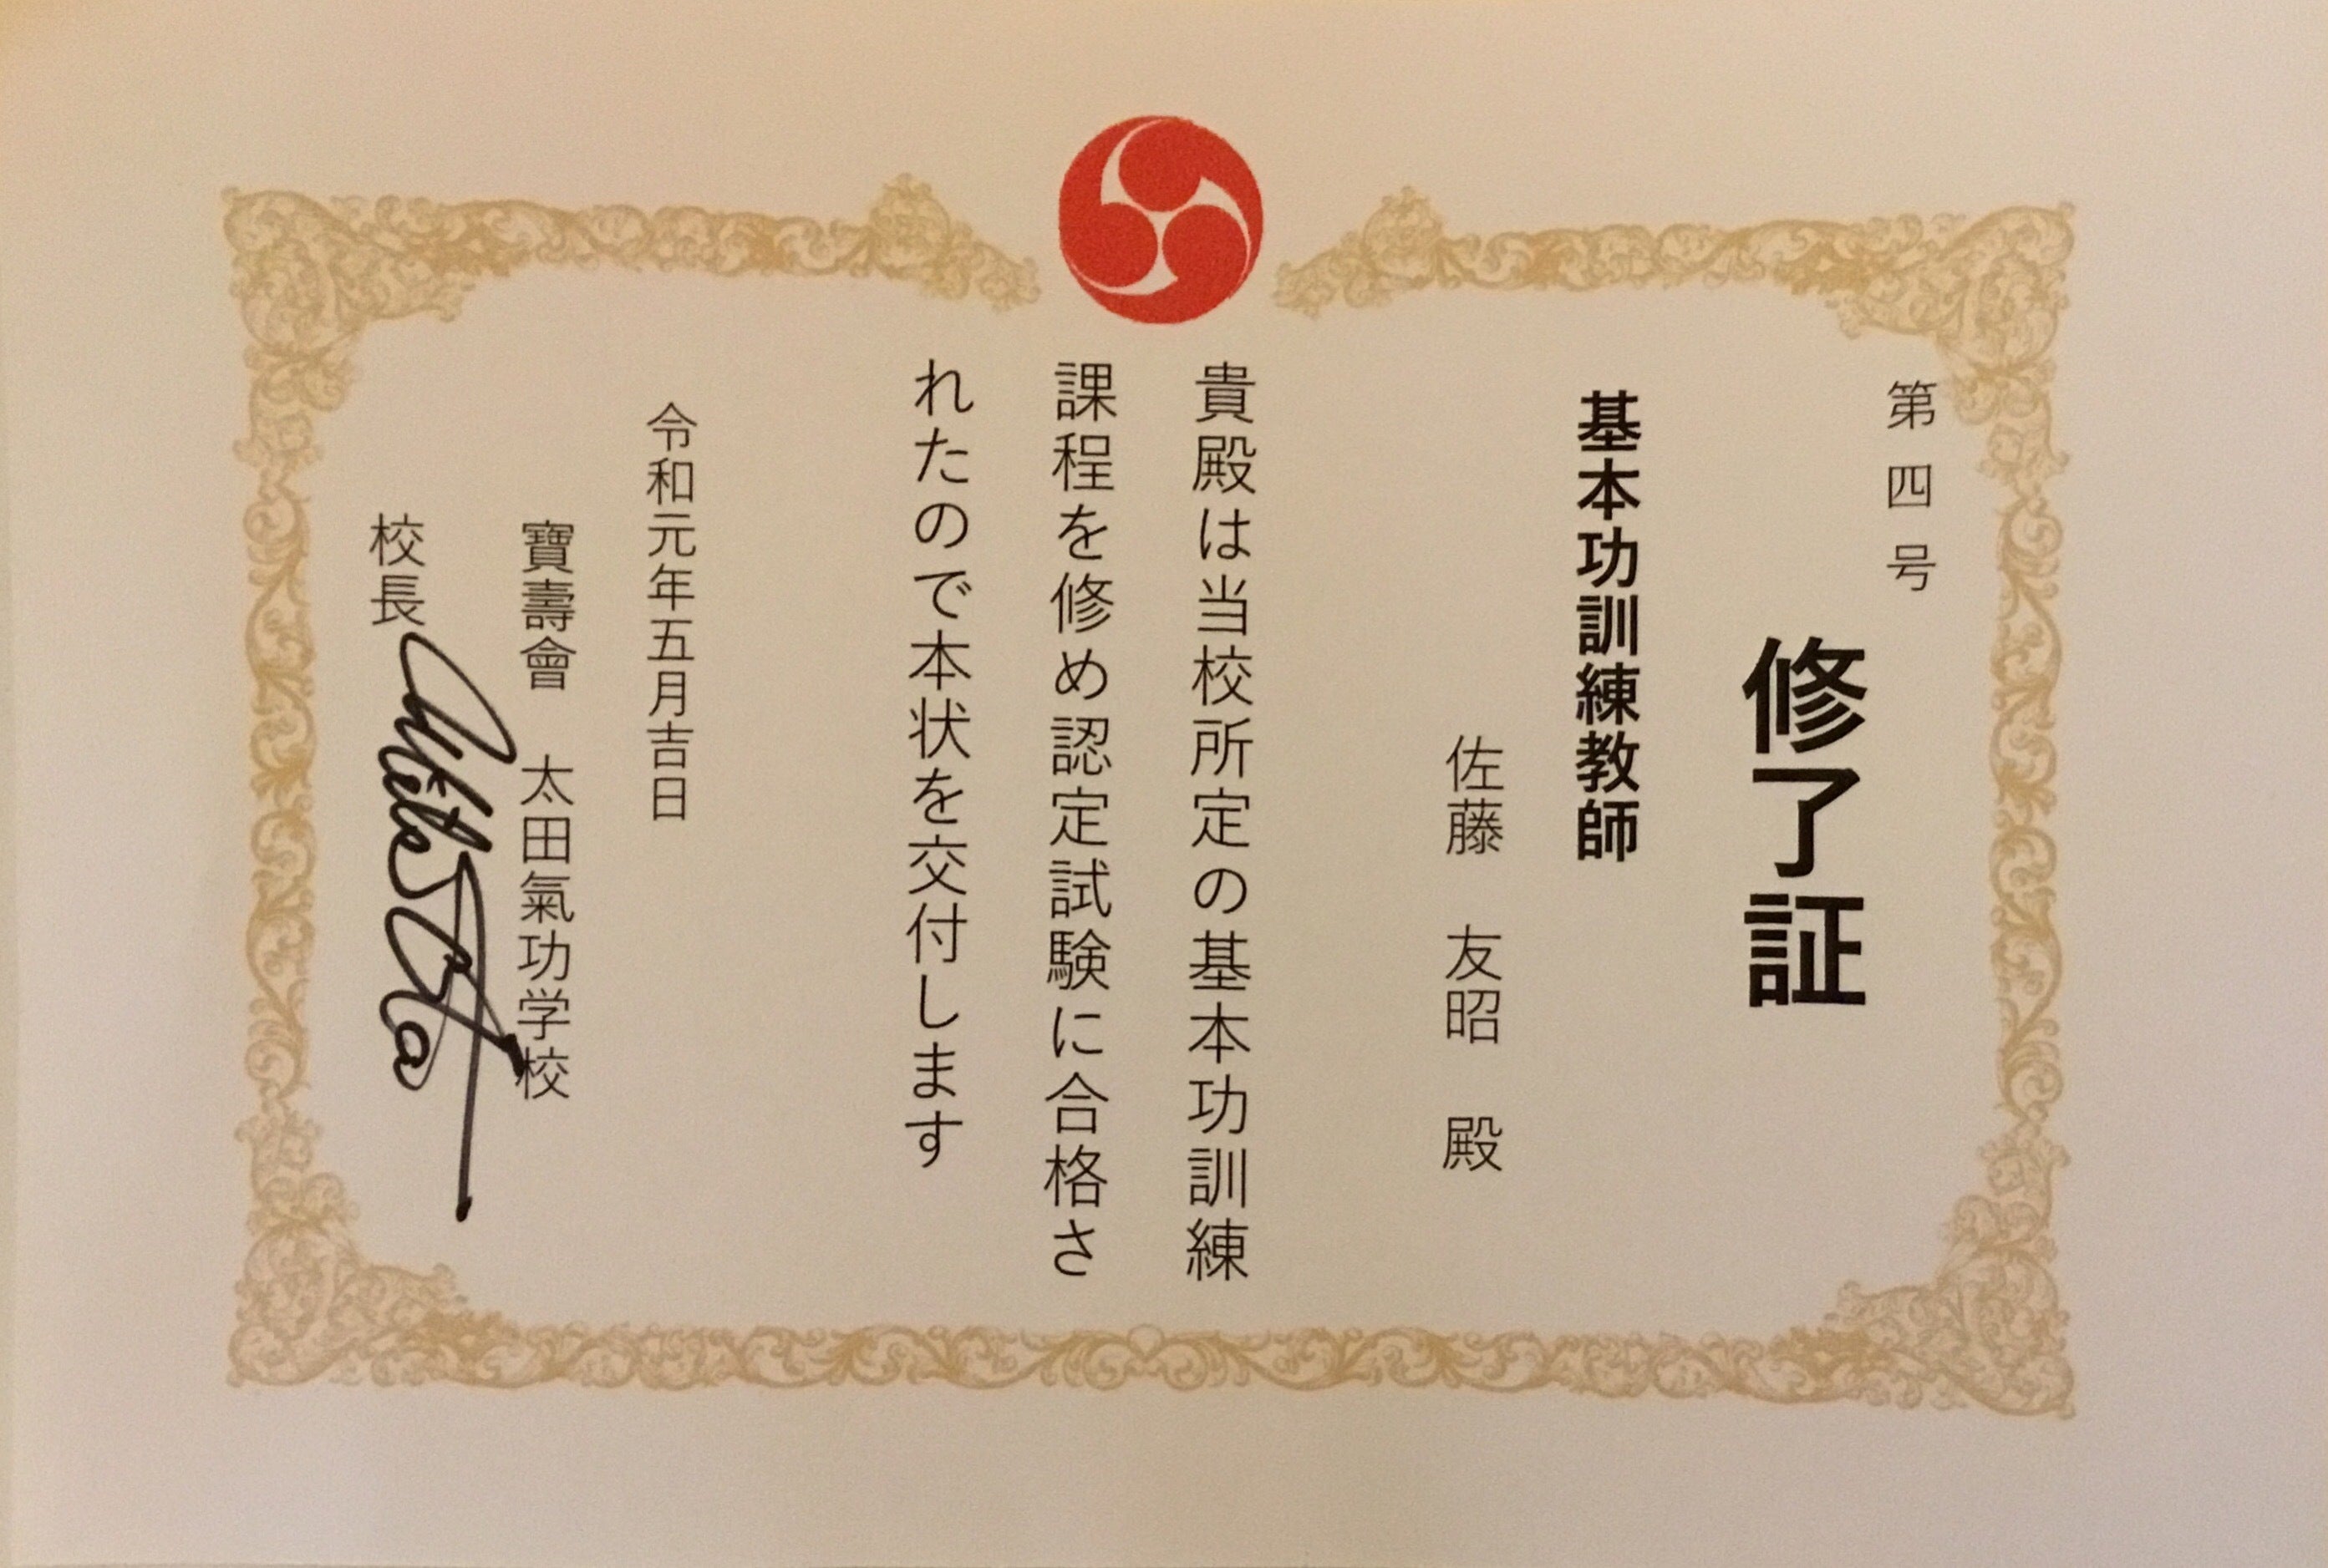 第四号
修了証
基本功訓練教師
佐藤　友昭　殿
貴殿は当校所定の基本功訓練
課程を修め認定試験に合格さ
れたので本状を交付します
令和元年五月吉日
寶壽會　太田氣功学校
校長